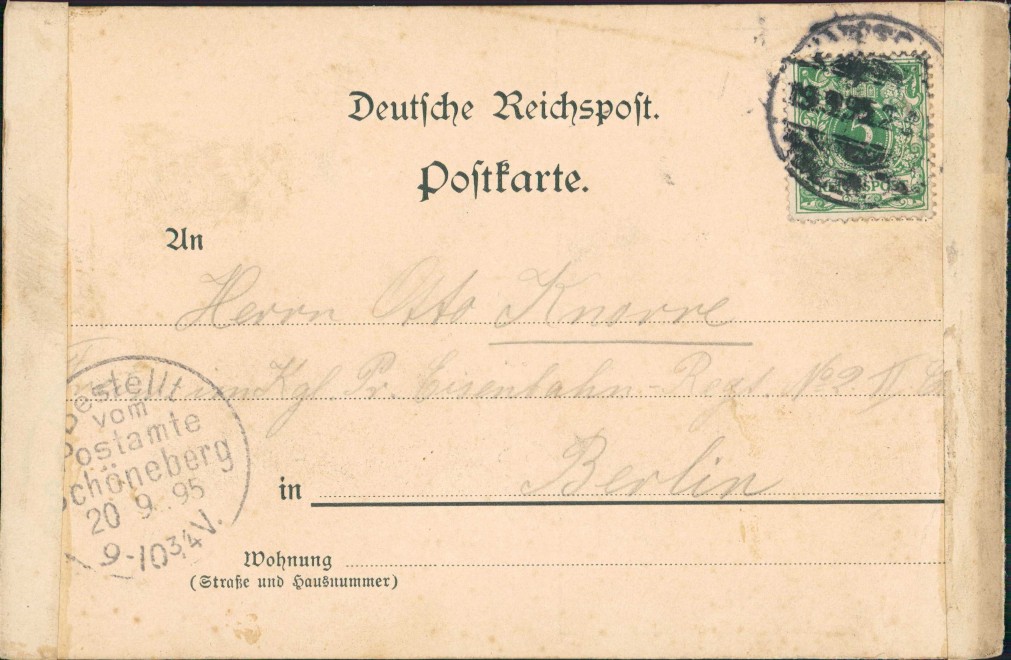 Deutsche Reichspost.
Postkarte.
19.9.95
5
REICHSPOST
An
Herrn Otto Knorre
im Kgl. Pr. Eisenbahn-Regt. No 2 II
Bestellt
vom
Postamte
Schöneberg
20 9. 95
9-10 3/4 V.
in Berlin
Wohnung
(Straße und Hausnummer)